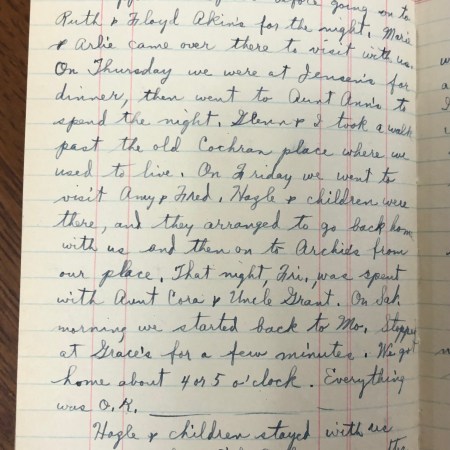 before going on to
Ruth & Floyd Akins for the night. Marie
& Arlie came over there to visit with us.
On Thursday we were at Jensen's for
dinner, then went to Aunt Ann's to
spend the night. Glenn & I took a walk
past the old Cochran place where we
used to live. On Friday we went to
visit Amy & Fred. Hazle & children were
there, and they arranged to go back home
with us and then on to Archie's from
our place. That night, Fri., was spent
with Aunt Cora & Uncle Grant. On Sat.
morning we started back to Mo. Stopped
at Grace's for a few minutes. We got
home about 4 or 5 o'clock. Everything
was O.K.
Hazle & children stayed with us
the